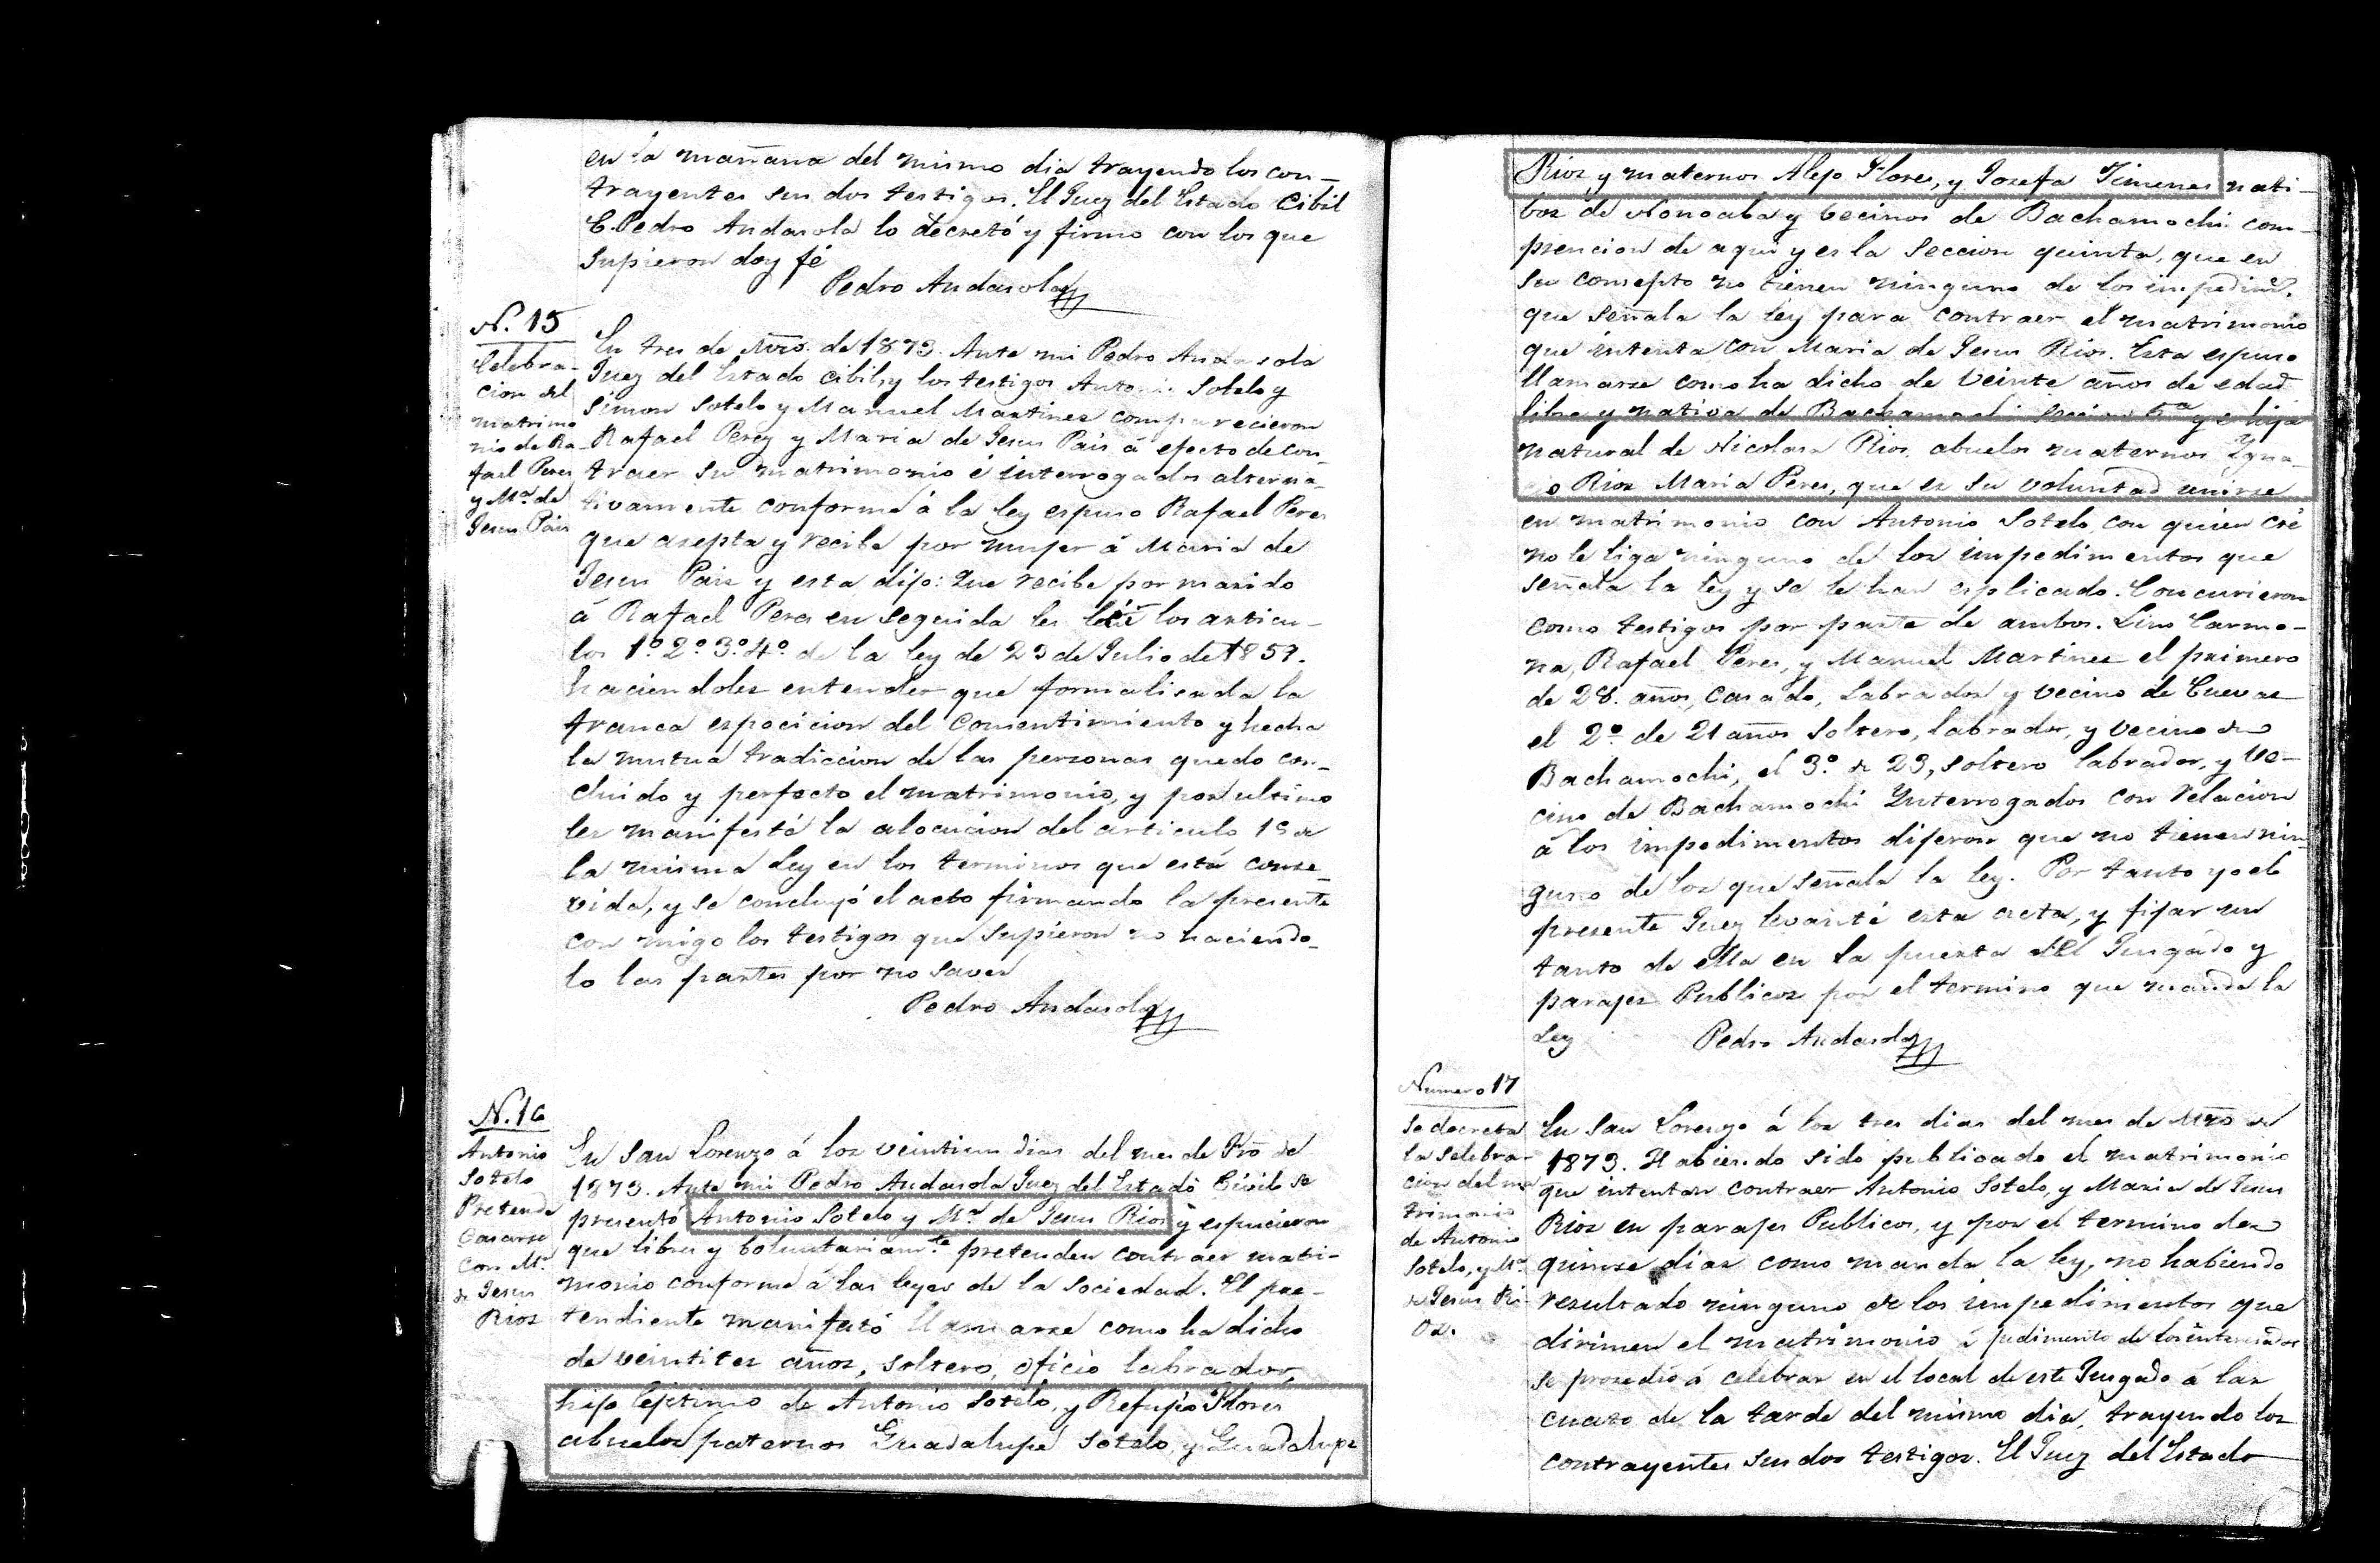 en la mañana del mismo dia trayendo los con-
trayentes sus dos testigos. El Juez del Estado Cibil
C. Pedro Andasola lo decretó y firmo con los que
supieron doy fé
Pedro Andasola
N. 15
Celebra-
cion del
matrimo
nio de Ra-
fael Peres
y Ma. de
Jesus Pais
En tres de Mzo. de 1873. Ante mi Pedro Andasola
Juez del Estado Cibil, y los testigos Antonio Sotelo y
Simon Sotelo y Manuel Martines comparecieron
Rafael Perez y Maria de Jesus Pais á efecto de con-
traer su matrimonio é interrogados alterna-
tivamente conforme á la ley espuso Rafael Peres
que asepta y recibe por muger á Maria de
Jesus Pais y esta dijo: Que recibe por marido
á Rafael Peres en seguida les leí los articu-
los 1º 2º 3º 4º de la ley de 23 de Julio de 1859.
haciendoles entender que formalisada la
franca esposicion del Consentimiento y hecha
la mutua tradiccion de las personas quedo con-
cluido y perfecto el matrimonio, y por ultimo
les manifesté la alocucion del articulo 15 de
la misma Ley en los terminos que está conse-
vida, y se concluyó el acto firmando la presente
con migo los testigos que supieron no haciendo-
lo las partes por no saver
Pedro Andasola
N. 16
Antonio
Sotelo
Pretende
Casarse
con Ma.
de Jesus
Rios
En San Lorenzo á los veintiun dias del mes de Fro de
1873. Ante mi Pedro Andasola Juez del Estado Civil se
presentó Antonio Sotelo y Ma. de Jesus Rios y espucieron
que libre y boluntariamte. pretenden contraer matri-
monio conforme á las leyes de la Sociedad. El pre-
tendiente manifestó llamarse como ha dicho
de veintitres años, soltero, oficio labrador,
hijo lejitimo de Antonio Sotelo, y Refujio Flores
abuelos paternos Guadalupe Sotelo, y Guadalupe
Rios, y maternos Alejo Flores, y Josefa Jimenes nati-
bos de Nonoaba y becinos de Bachamochi com-
prencion de aqui y es la Seccion quinta, que en
su consepto no tienen ninguno de los impedimtos.
que señala la ley para contraer el matrimonio
que intenta con Maria de Jesus Rios. Esta espuso
llamarse como ha dicho de veinte años de edad
libre y nativa de Bachamochi Seccion 5a y es hija
natural de Nicolasa Rios, abuelos maternos Ygna-
cio Rios Maria Peres, que es su voluntad unirse
en matrimonio con Antonio Sotelo, con quien cré
no le liga ninguno de los impedimentos que
señala la ley y se le han esplicado. Concurieron
como testigos por parte de ambos. Lino Carmo-
na, Rafael Peres, y Manuel Martines el primero
de 28. años, casado, Labrador y vecino de Cuevas
el 2º de 21 años soltero, labrador, y vecino de
Bachamochi, el 3º de 23, soltero labrador, y ve-
cino de Bachamochi Ynterrogados con relacion
á los impedimentos dijeron que no tienen nin-
guno de los que señala la ley. Por tanto yo el
presente Juez levanté esta acta, y fijar un
tanto de ella en la puerta del Jusgado y
parajes Publicos por el termino que manda la
Ley
Pedro Andasola
Numero 17
Se decreta
la selebra-
cion del ma
trimonio
de Antonio
Sotelo, y Ma.
de Jesus Ri-
os.
En San Lorenzo á los tres dias del mes de Mzo de
1873. Habiendo sido publicado el matrimonio
que intentan contraer Antonio Sotelo, y Maria de Jesus
Rios en parajes Publicos, y por el termino de
quinse dias como manda la ley, no habiendo
resultado ninguno de los impedimentos que
dirimen el matrimonio á pedimento de los interesados
se prosedió á celebrar en el local de este Jusgado á las
cuatro de la tarde del mismo dia, trayendo los
contrayentes sus dos testigos. El Juez del Estado